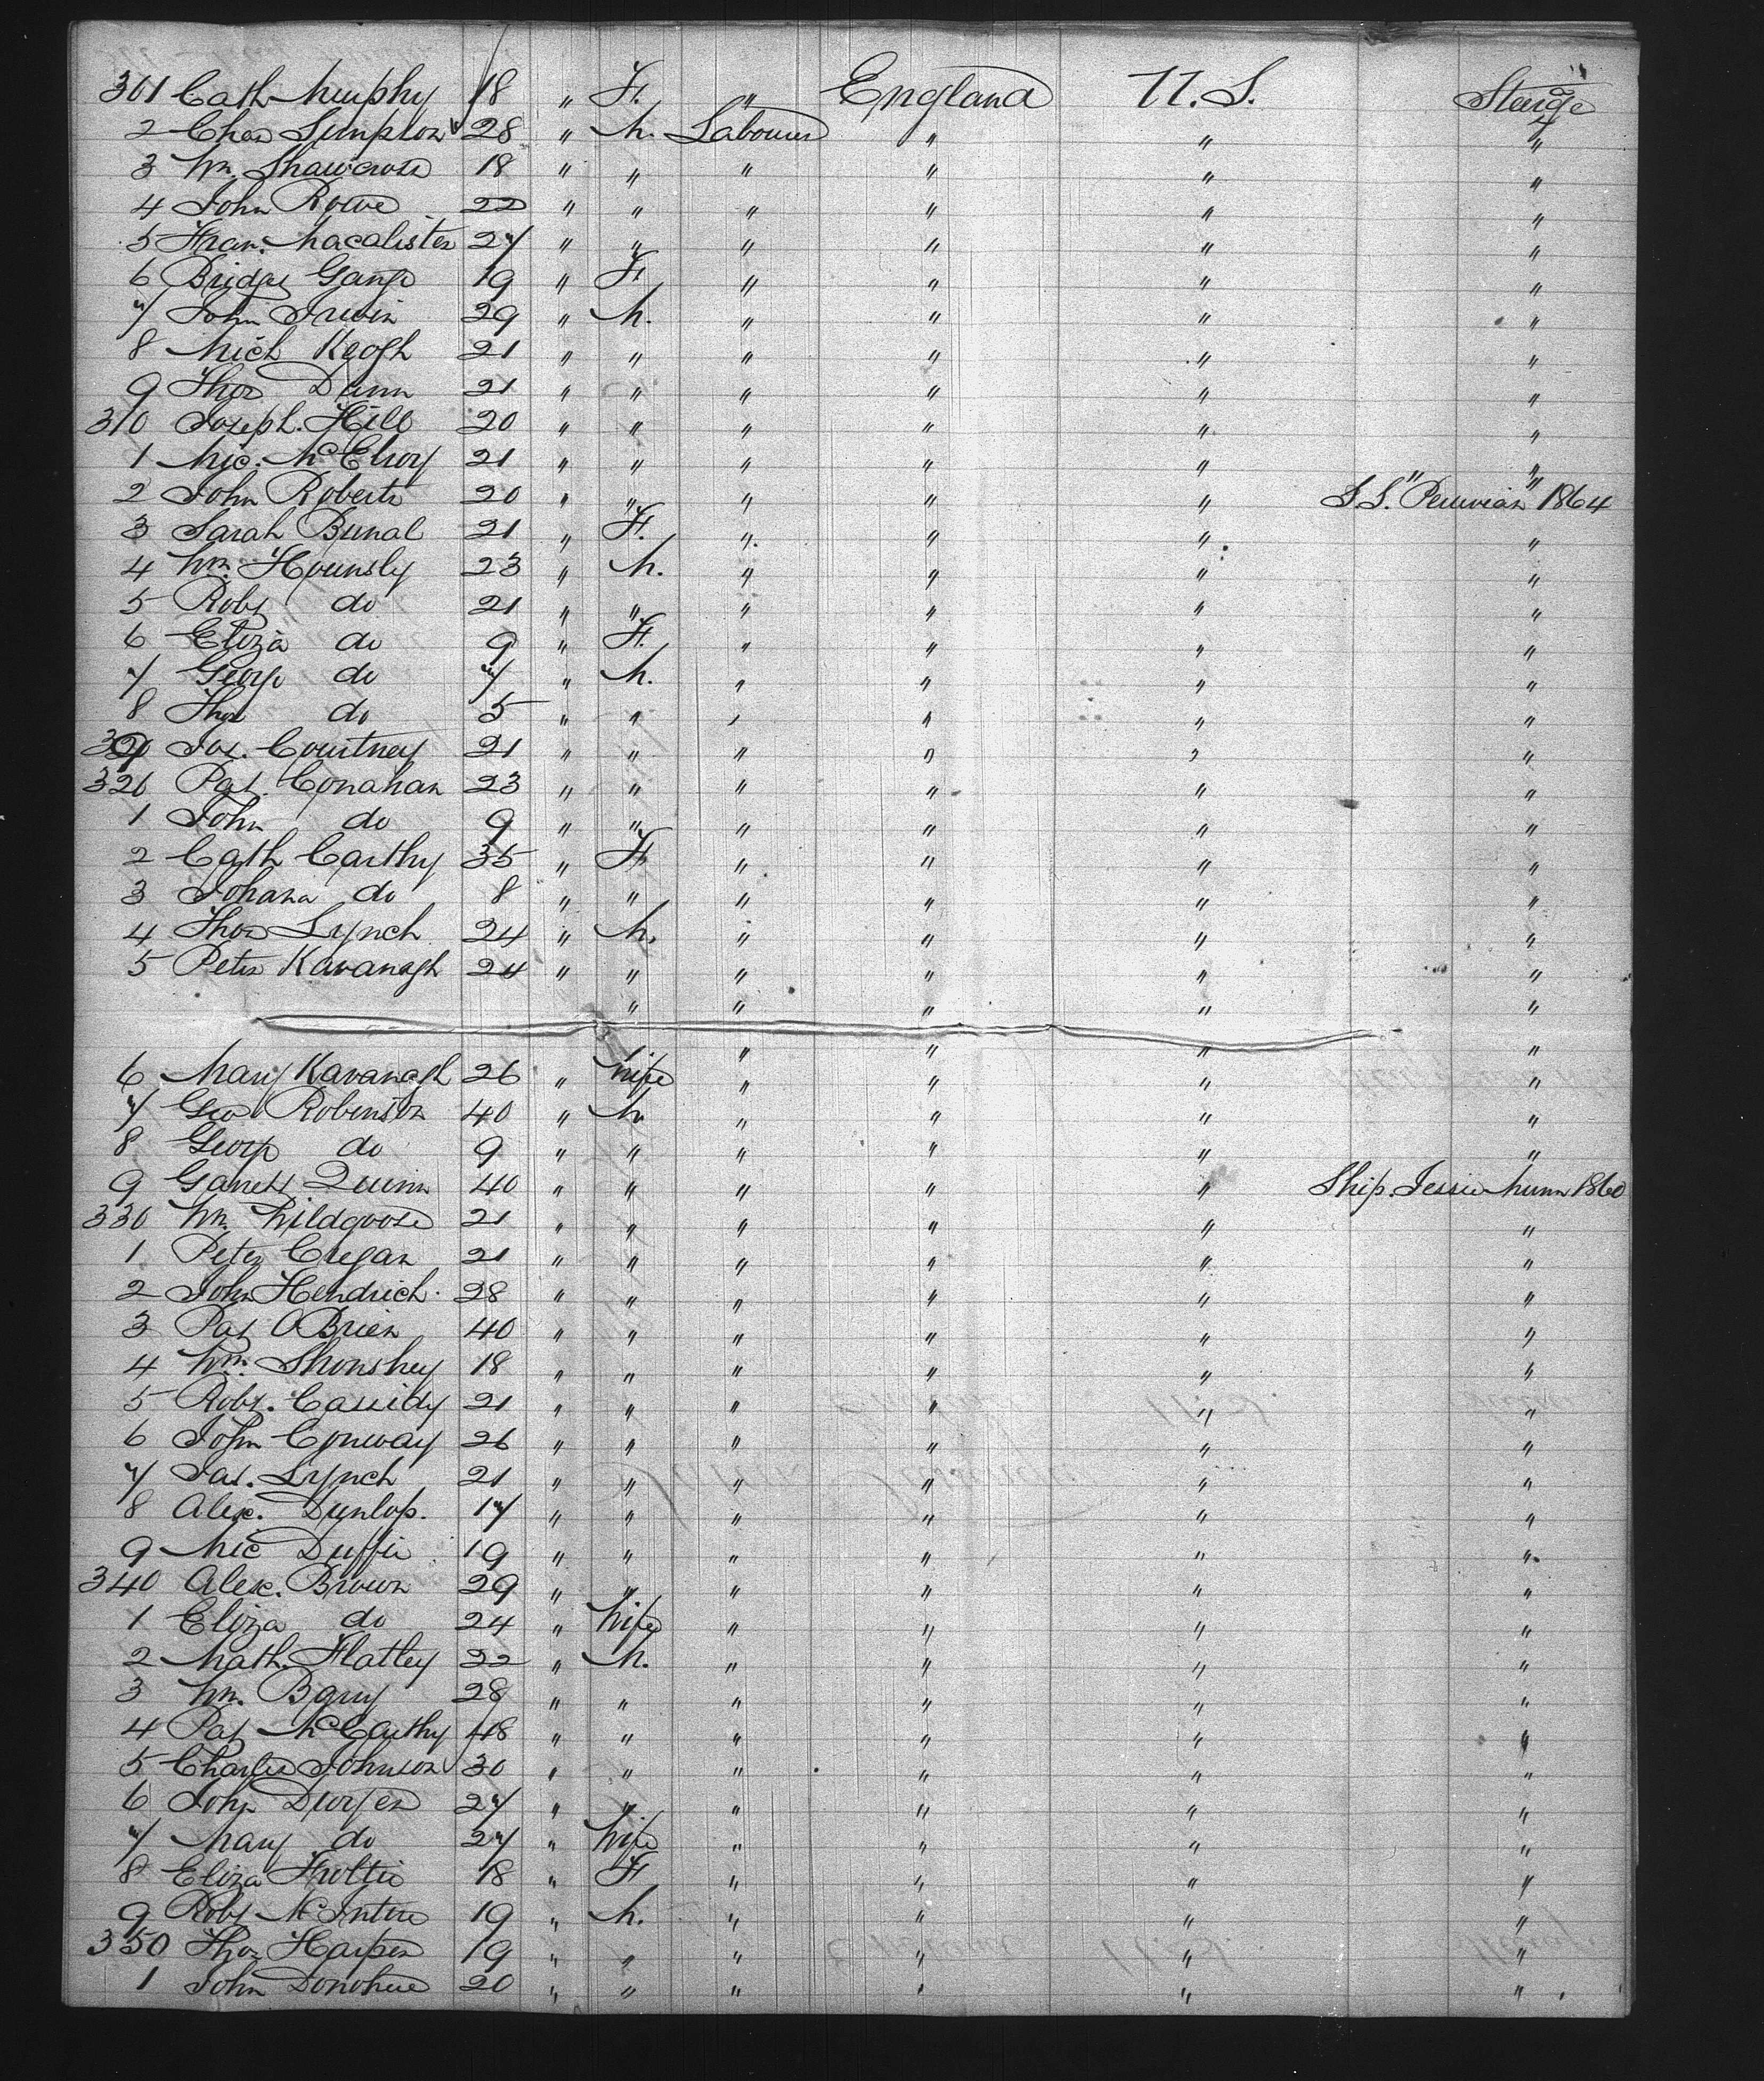 301 Cath Murphy 18 " F. " England U.S. Steerage
2 Chas Simpson 28 " M. Labourer " " "
3 Wm. Shawcross 18 " " " " " "
4 John Rowe 22 " " " " " "
5 Fran. Macalister 27 " " " " " "
6 Bridget 19 " F. " " " "
7 John Irwin 29 " M. " " " "
8 Mich Keogh 21 " " " " " "
9 Thos Dunn 21 " " " " " "
310 Joseph. Hill 20 " " " " " "
1 Mic. McElroy 21 " " " " " "
2 John Roberts 20 " " " " " S.S. "Peruvian" 1864
3 Sarah 21 " F. " " " "
4 Wm. Hounsly 23 " M. " " " "
5 Robt do 21 " " " " " "
6 Eliza do 9 " F. " " " "
7 George do 7 " M. " " " "
8 Thos do 5 " " " " " "
9 Jas. Courtney 21 " " " " " "
320 Pat. Conahan 23 " " " " " "
1 John do 9 " " " " " "
2 Cath Carthy 35 " F. " " " "
3 Johana do 8 " " " " " "
4 Thos Lynch 24 " M. " " " "
5 Peter Kavanagh 24 " " " " " "
" " " " "
" " " "
6 Mary Kavanagh 26 " Wife " " " "
7 Geo Robinson 40 " M " " " "
8 George do 9 " " " " " "
9 Garrett Quinn 40 " " " " " Ship. Jessie Munn 1860
330 Wm. Wildgoose 21 " " " " " "
1 Peter Cregan 21 " " " " " "
2 John Hendrich. 28 " " " " " "
3 Pat OBrien 40 " " " " " "
4 Wm. Shonshey 18 " " " " " "
5 Robt. Cassidy 21 " " " " " "
6 John Conway 26 " " " " " "
7 Jas. Lynch 21 " " " " " "
8 Alex. Dunlop. 17 " " " " " "
9 Mic Duffie 19 " " " " " "
340 Alex. Brown 29 " " " " " "
1 Eliza do 24 " Wife " " " "
2 Math. Flatley 22 " M. " " " "
3 Wm. Barry 28 " " " " " "
4 Pat McCarthy 48 " " " " " "
5 Charles Johnson 30 " " " " " "
6 John 27 " " " " " "
7 Mary do 27 " Wife " " " "
8 Eliza 18 " F. " " " "
9 Robt McIntire 19 " M. " " " "
350 Thos Harper 19 " " " " " "
1 John Donohue 20 " " " " " "